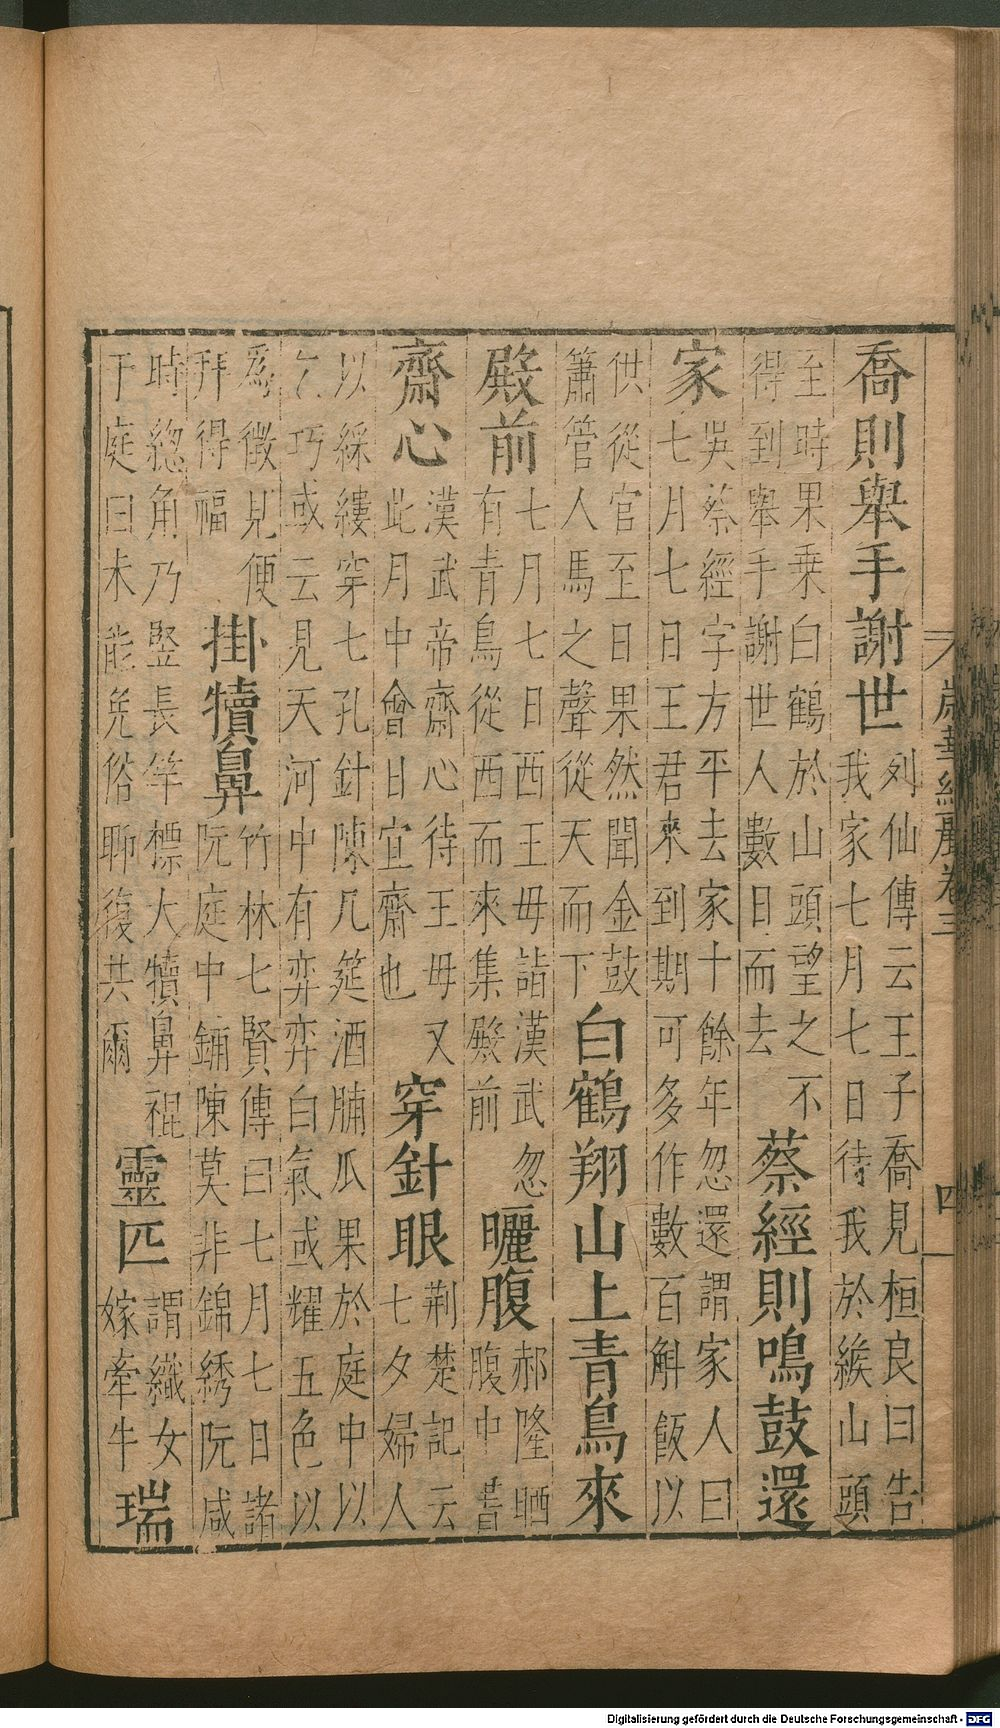 喬則舉手謝世列仙傳云王子喬見桓良曰告
我家七月七日待我於緱山頭
至時果乗白鶴於山頭望之不
得到舉手謝世人數日而去蔡經則鳴鼓還
家吳蔡經字方平去家十餘年忽還謂家人曰
七月七日王君來到期可多作數百斛飯以
供從官至日果然聞金鼓
簫管人馬之聲從天而下白鶴翔山上青鳥來
殿前七月七日西王母詣漢武忽
有青鳥從西而來集殿前曬腹郝隆晒
腹中書
齋心漢武帝齋心待王母又
此月中會日宜齋也穿針眼荆楚記云
七夕婦人
以綵縷穿七孔針陳几筵酒脯瓜果於庭中以
乞巧或云見天河中有弈弈白氣或耀五色以
爲徵見便
拜得福掛犢鼻竹林七賢傳曰七月七日諸
阮庭中鋪陳莫非錦綉阮咸
時緫角乃竪長竿標大犢鼻裩
于庭曰未能免俗聊復共爾靈匹謂織女
嫁牽牛瑞
歲華紀麗卷三
四
Digitalisierung gefördert durch die Deutsche Forschungsgemeinschaft - DFG